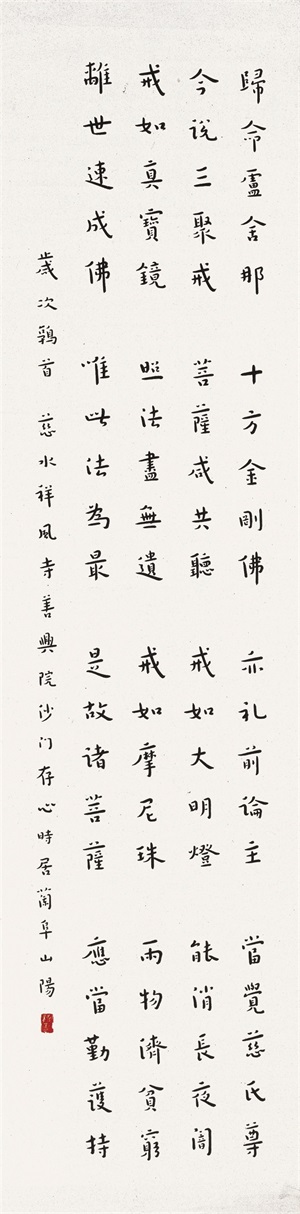 歸命盧舍那 十方金剛佛 亦礼前論主 當覺慈氏尊
今說三聚戒 菩薩咸共聽 戒如大明燈 能消長夜闇
戒如真寶鏡 照法盡無遺 戒如摩尼珠 雨物濟貧窮
離世速成佛 唯此法為最 是故诸菩薩 應當勤護持
歲次鶉首 慈水祥風寺善興院沙门存心時居蘭阜山陽